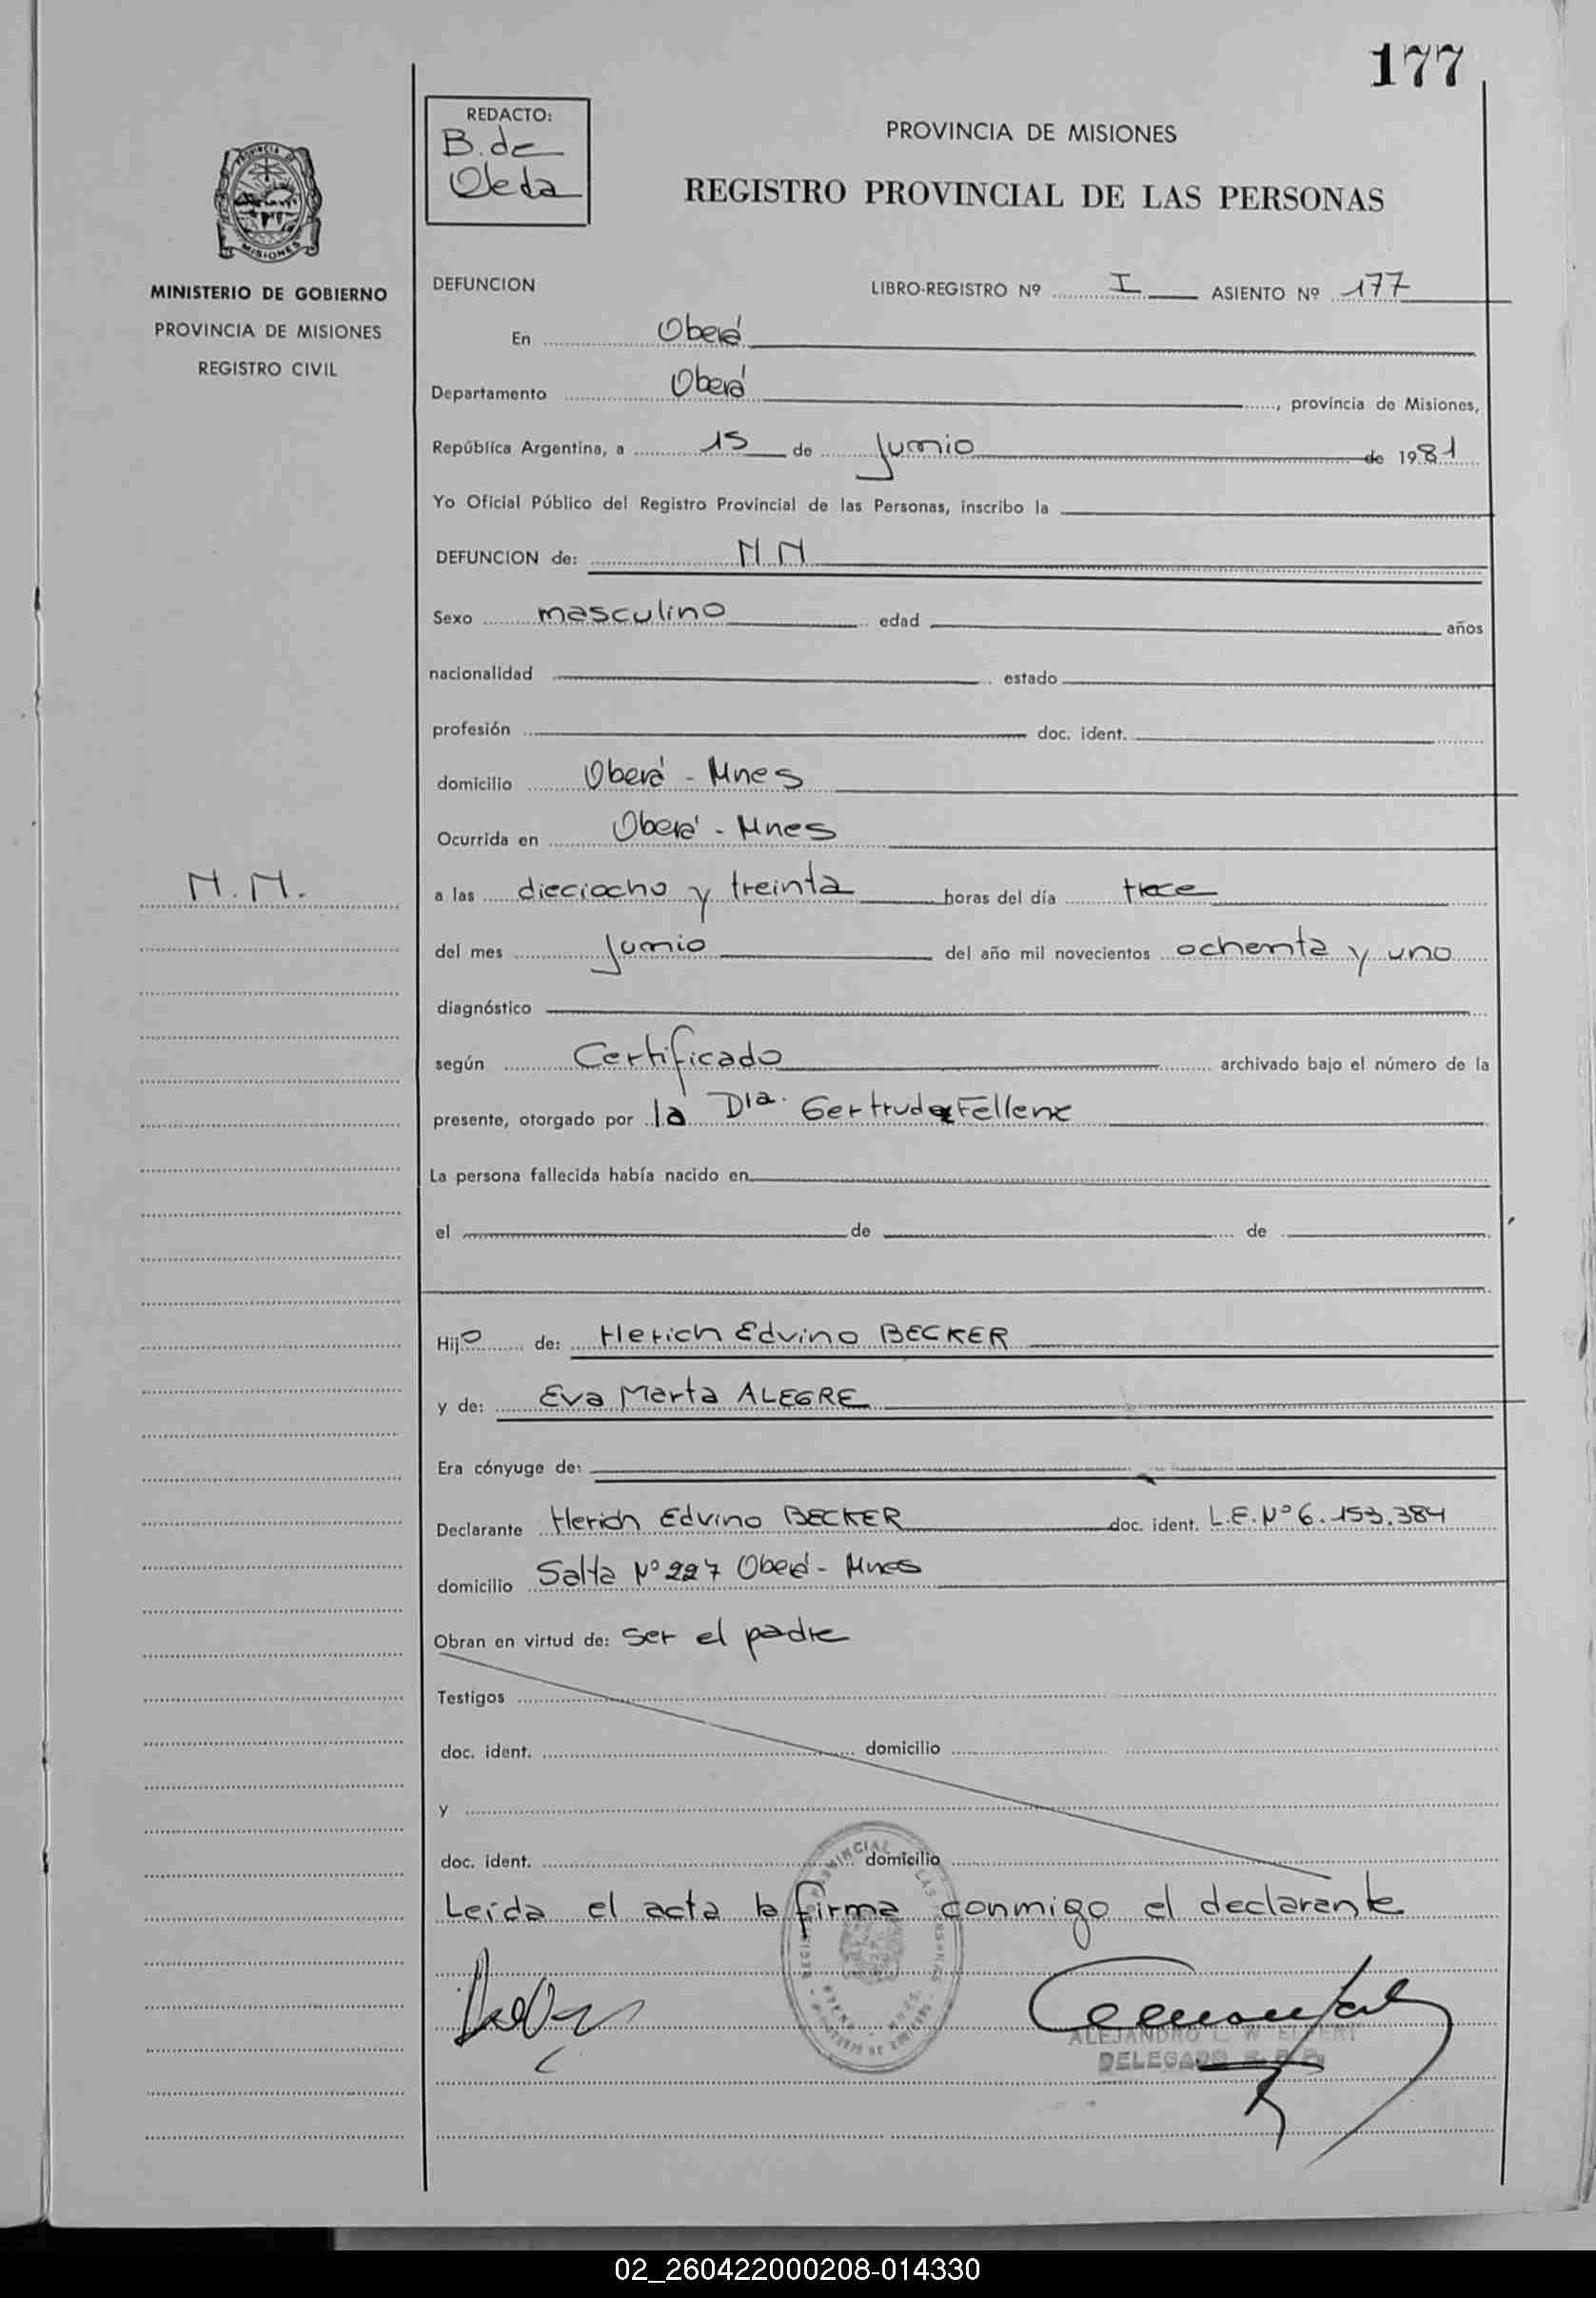 177
REDACTO:
B. de
Oleda
PROVINCIA DE MISIONES
REGISTRO PROVINCIAL DE LAS PERSONAS
PROVINCIA DE
MISIONES
MINISTERIO DE GOBIERNO
PROVINCIA DE MISIONES
REGISTRO CIVIL
DEFUNCION
LIBRO-REGISTRO Nº I ASIENTO Nº 177
En Oberá
Departamento Oberá, provincia de Misiones,
República Argentina, a 15 de Junio de 1981
Yo Oficial Público del Registro Provincial de las Personas, inscribo la
DEFUNCION de: N.N
Sexo masculino edad años
nacionalidad estado
profesión doc. ident.
domicilio Oberá - Mnes
Ocurrida en Oberá - Mnes
N.N.
a las dieciocho y treinta horas del día trece
del mes Junio del año mil novecientos ochenta y uno
diagnóstico
según Certificado archivado bajo el número de la
presente, otorgado por la Dra. Gertrude Fellenz
La persona fallecida había nacido en
el de de
Hijo de: Herich Edvino BECKER
y de: Eva Marta ALEGRE
Era cónyuge de:
Declarante Herich Edvino BECKER doc. ident. L.E. Nº 6.153.384
domicilio Salta Nº 227 Oberá - Mnes
Obran en virtud de: ser el padre
Testigos
doc. ident. domicilio
y
doc. ident. domicilio
Leida el acta la firma conmigo el declarante
ALEJANDRO L. W.
DELEGADO R. P. P.
02_260422000208-014330